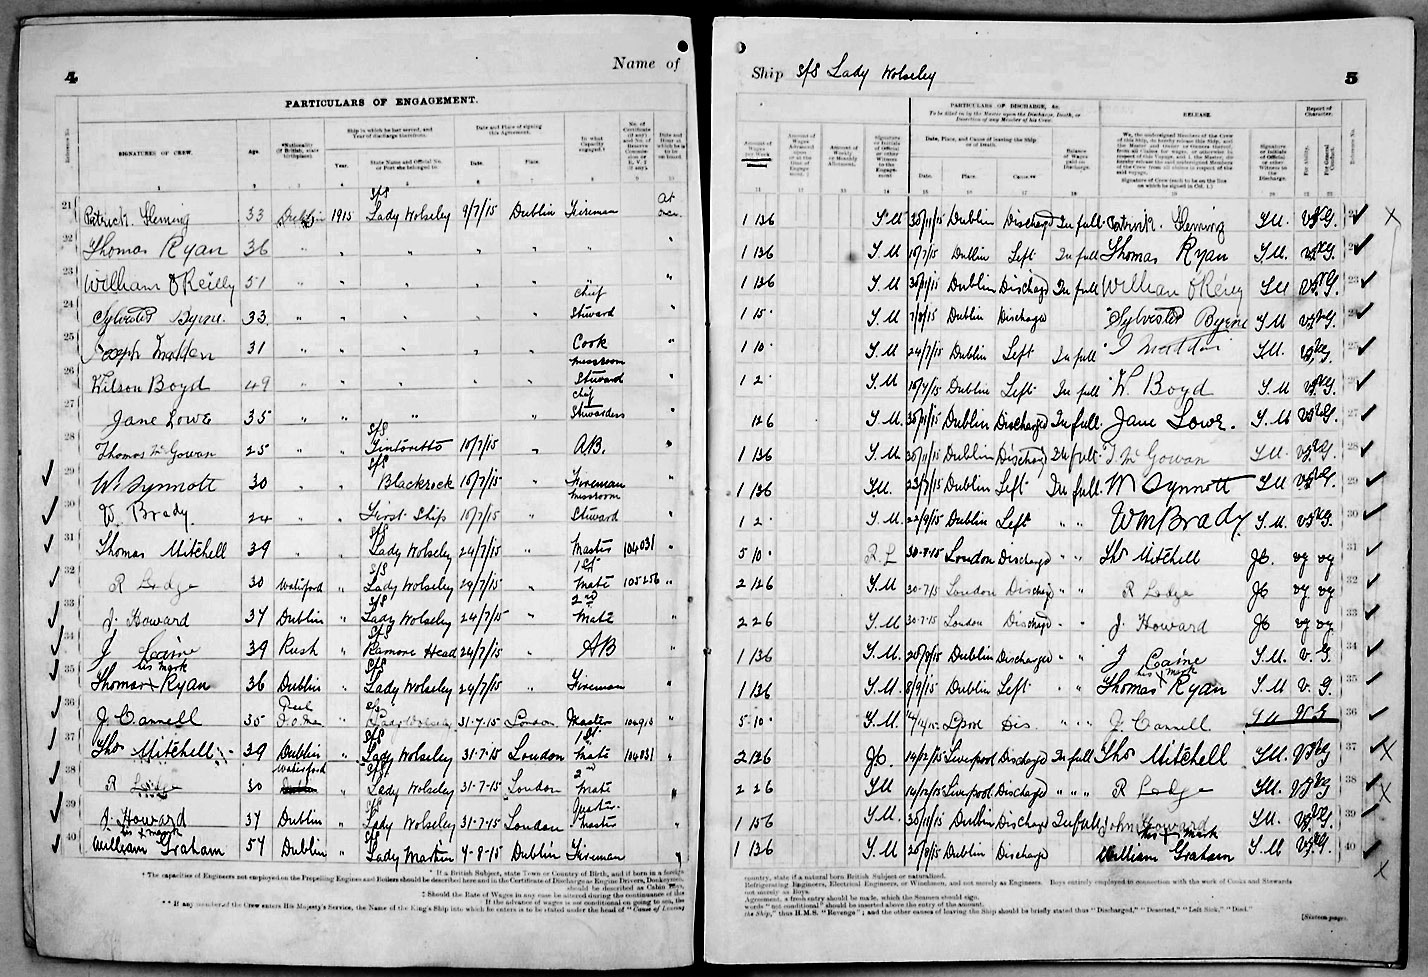 4
Name of
PARTICULARS OF ENGAGEMENT.
SIGNATURES OF CREW.
Age.
Ship in which he last served, and Year of discharge therefrom.
Year.
State Name and Official No. or Port she belonged to
Date and Place of signing this Agreement.
Date.
Place.
In what Capacity engaged
21 Patrick Fleming 33 Dublin 1915 S/S Lady Wolseley 9/7/15 Dublin Fireman At once
22 Thomas Ryan 36 " " " " " "
23 William O'Reilly 51 " " " " " " "
24 Sylvester Byrne 33 " " " " " Chief Steward "
25 Joseph 31 " " " " " Cook "
26 Wilson Boyd 49 " " " " " Messroom Steward "
27 Jane Lowe 35 " " " " Chief Stewardess "
28 Thomas McGowan 25 " " S/S Tintoretto 10/7/15 " A.B. "
29 W Synnott 30 " " S/S Blackrock 10/7/15 " Fireman "
30 W. Brady 24 " " First Ship 10/7/15 " Messroom Steward "
31 Thomas Mitchell 39 " " S/S Lady Wolseley 24/7/15 " Master 104031 "
32 R Ledge 30 Waterford " S/S Lady Wolseley 24/7/15 " 1st Mate 105256 "
33 J. Howard 37 Dublin " S/S Lady Wolseley 24/7/15 " 2nd Mate "
34 J Caine 39 Rush " S/S Ramore Head 24/7/15 " AB "
35 Thomas his x mark Ryan 36 Dublin " S/S Lady Wolseley 24/7/15 " Fireman "
36 J. Cannell 35 Peel " S/S Lady Wolseley 31-7-15 London Master "
37 Thos Mitchell 39 Dublin " S/S Lady Wolseley 31-7-15 London 1st Mate 104031 "
38 R Ledge 30 Waterford " S/S Lady Wolseley 31-7-15 London 2nd Mate "
39 J. Howard 37 Dublin " S/S Lady Wolseley 31-7-15 London Quarter Master "
40 William his x mark Graham 57 Dublin " Lady Martin 4-8-15 Dublin Fireman "
* If a British Subject, state Town or Country of Birth, and if born in a foreign
† The capacities of Engineers not employed on the Propelling Engines and Boilers should be described here and in the Certificate of Discharge as Engine Drivers, Donkeymen,
should be described as Cabin Boys,
‡ Should the Rate of Wages in any case be altered during the continuance of this
If the advance of wages is not conditional on going to sea, the
** If any member of the Crew enters His Majesty's Service, the Name of the King's Ship into which he enters is to be stated under the head of "Cause of Leaving
Ship S/S Lady Wolseley
5
PARTICULARS OF DISCHARGE, &c.
To be filled in by the Master upon the Discharge, Death, or Desertion of any Member of his Crew.
Date, Place, and Cause of leaving the Ship or of Death.
Date.
Place.
Cause.**
Balance of Wages paid on Discharge.
RELEASE.
Signature of Crew (each to be on the line on which he signed in Col. 1.)
Report of Character.
1 13 6 S.M 30/11/15 Dublin Discharged In full Patrick Fleming S.M. V.G. V.G. 21
1 13 6 S.M 10/7/15 Dublin Left In full Thomas Ryan S.M. V.G. V.G.
1 13 6 S.M 30/11/15 Dublin Discharged In full William O'Reilly S.M V.G. V.G. 23
1 15 " S.M 7/8/15 Dublin Discharged Sylvester Byrne S.M V.G. V.G.
1 10 " S.M 24/7/15 Dublin Left In full S.M. V.G. V.G. 25
1 2 " S.M 10/7/15 Dublin Left In full W. Boyd S.M V.G. V.G. 26
12 6 S.M. 30/11/15 Dublin Discharged In full. Jane Lowe. S.M V.G. V.G. 27
1 13 6 S.M 30/11/15 Dublin Discharged In full T. McGowan S.M. V.G. V.G. 28
1 13 6 S.M. 23/7/15 Dublin Left In full W Synnott S.M V.G. V.G. 29
1 2 " S.M. 22/9/15 Dublin Left " " Wm Brady S.M. V.G. V.G. 30
5 10 " R.L 30-7-15 London Discharged " " Thos Mitchell JC. vg vg 31
2 12 6 S.M 30-7-15 London Discharged " " R Ledge JC vg vg 32
2 2 6 S.M 30-7-15 London Discharged " " J. Howard JC vg vg 33
1 13 6 S.M. Dublin Discharged " " J Caine S.M. V. G. 34
1 13 6 S.M. 8/9/15 Dublin Left " " Thomas his x mark Ryan S.M V. G. 35
5 10 " S.M. Lpool Dis. " " " J. Cannell S.M V G 36
2 12 6 JC. 14/12/15 Liverpool Discharged In full Thos Mitchell S.M. V.G. V.G 37
2 2 6 S.M 14/12/15 Liverpool Discharged " " " R Ledge S.M. V.G V.G 38
1 15 6 S.M. 30/11/15 Dublin Discharged In full John Howard S.M. V.G. V.G. 39
1 13 6 S.M Dublin Discharged William his x mark Graham S.M V.G. V.G. 40
country, state if a natural born British Subject or naturalized.
Refrigerating Engineers, Electrical Engineers, or Winchmen, and not merely as Engineers. Boys entirely employed in connection with the work of Cooks and Stewards
not merely as Boys.
Agreement, a fresh entry should be made, which the Seaman should sign.
words "not conditional" should be inserted above the entry of the amount.
the Ship," thus H.M.S. "Revenge"; and the other causes of leaving the Ship should be briefly stated thus "Discharged," "Deserted," "Left Sick," "Died."
[Sixteen-page.